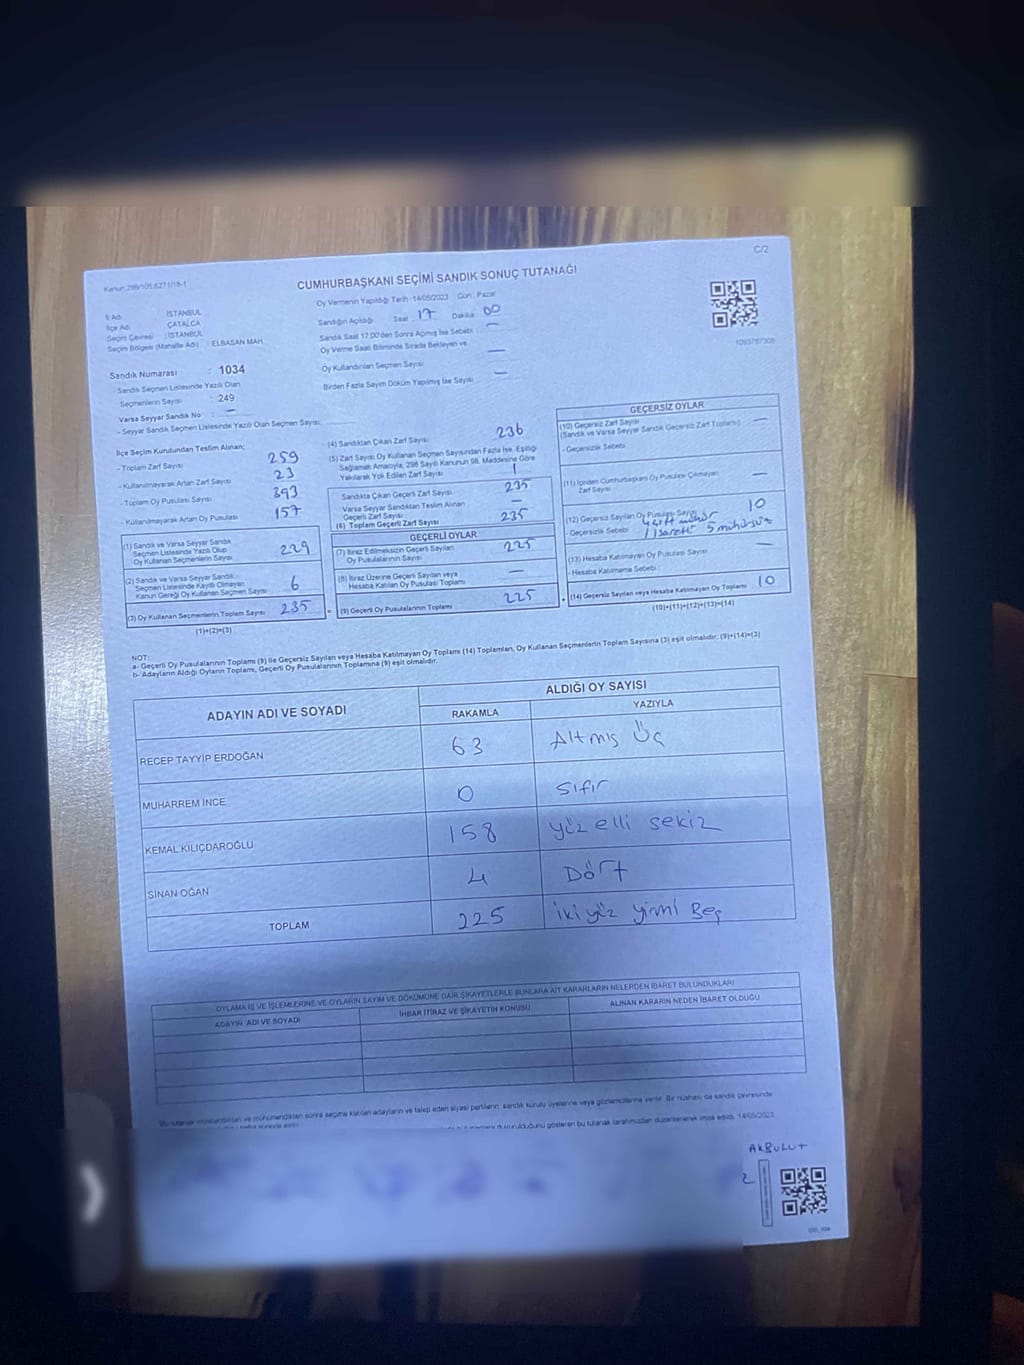 C/2
Kanun 298/105;6271/18-1
CUMHURBAŞKANI SEÇİMİ SANDIK SONUÇ TUTANAĞI
İl Adı : İSTANBUL
İlçe Adı : ÇATALCA
Seçim Çevresi : İSTANBUL
Seçim Bölgesi (Mahalle Adı) : ELBASAN MAH.
Sandık Numarası : 1034
Sandık Seçmen Listesinde Yazılı Olan
Seçmenlerin Sayısı : 249
Varsa Seyyar Sandık No : —
- Seyyar Sandık Seçmen Listesinde Yazılı Olan Seçmen Sayısı:
Oy Vermenin Yapıldığı Tarih : 14/05/2023 Gün : Pazar
Sandığın Açıldığı Saat 17 Dakika 00
Sandık Saat 17:00'den Sonra Açılmış İse Sebebi —
Oy Verme Saati Bitiminde Sırada Bekleyen ve
Oy Kullandırılan Seçmen Sayısı —
Birden Fazla Sayım Döküm Yapılmış İse Sayısı —
İlçe Seçim Kurulundan Teslim Alınan;
- Toplam Zarf Sayısı 259
- Kullanılmayarak Artan Zarf Sayısı 23
- Toplam Oy Pusulası Sayısı 393
- Kullanılmayarak Artan Oy Pusulası 157
(1) Sandık ve Varsa Seyyar Sandık
Seçmen Listesinde Yazılı Olup
Oy Kullanan Seçmenlerin Sayısı 229
(2) Sandık ve Varsa Seyyar Sandık
Seçmen Listesinde Kayıtlı Olmayan
Kanun Gereği Oy Kullanan Seçmen Sayısı 6
(3) Oy Kullanan Seçmenlerin Toplam Sayısı 235
(1)+(2)=(3)
(4) Sandıktan Çıkan Zarf Sayısı 236
(5) Zarf Sayısı Oy Kullanan Seçmen Sayısından Fazla İse, Eşitliği
Sağlamak Amacıyla, 298 Sayılı Kanunun 98. Maddesine Göre
Yakılarak Yok Edilen Zarf Sayısı 1
Sandıkta Çıkan Geçerli Zarf Sayısı 235
Varsa Seyyar Sandıktan Teslim Alınan
Geçerli Zarf Sayısı —
(6) Toplam Geçerli Zarf Sayısı 235
GEÇERLİ OYLAR
(7) İtiraz Edilmeksizin Geçerli Sayılan
Oy Pusulalarının Sayısı 225
(8) İtiraz Üzerine Geçerli Sayılan veya
Hesaba Katılan Oy Pusulası Toplamı —
(9) Geçerli Oy Pusulalarının Toplamı 225
GEÇERSİZ OYLAR
(10) Geçersiz Zarf Sayısı —
(Sandık ve Varsa Seyyar Sandık Geçersiz Zarf Toplamı)
- Geçersizlik Sebebi
(11) İçinden Cumhurbaşkanı Oy Pusulası Çıkmayan
Zarf Sayısı —
(12) Geçersiz Sayılan Oy Pusulası Sayısı 10
- Geçersizlik Sebebi 4 çift mühür
1 işaretli 5 mühürsüz
(13) Hesaba Katılmayan Oy Pusulası Sayısı —
- Hesaba Katılmama Sebebi
(14) Geçersiz Sayılan veya Hesaba Katılmayan Oy Toplamı 10
(10)+(11)+(12)+(13)=(14)
NOT:
a- Geçerli Oy Pusulalarının Toplamı (9) ile Geçersiz Sayılan veya Hesaba Katılmayan Oy Toplamı (14) Toplamları, Oy Kullanan Seçmenlerin Toplam Sayısına (3) eşit olmalıdır. (9)+(14)=(3)
b- Adayların Aldığı Oyların Toplamı, Geçerli Oy Pusulalarının Toplamına (9) eşit olmalıdır.
ADAYIN ADI VE SOYADI ALDIĞI OY SAYISI
RAKAMLA YAZIYLA
RECEP TAYYİP ERDOĞAN 63 Altmış Üç
MUHARREM İNCE 0 Sıfır
KEMAL KILIÇDAROĞLU 158 yüz elli sekiz
SİNAN OĞAN 4 Dört
TOPLAM 225 iki yüz yirmi Beş
OYLAMA İŞ VE İŞLEMLERİNE VE OYLARIN SAYIM VE DÖKÜMÜNE DAİR ŞİKAYETLERLE BUNLARA AİT KARARLARIN NELERDEN İBARET BULUNDUKLARI
ADAYIN ADI VE SOYADI İHBAR İTİRAZ VE ŞİKAYETİN KONUSU ALINAN KARARIN NEDEN İBARET OLDUĞU
sonra seçime katılan adayların ve talep eden siyasi partilerin, sandık kurulu üyelerine veya gözlemcilerine verilir. Bir nüshası da sandık çevresinde
gösteren bu tutanak tarafımızdan düzenlenerek imza edildi. 14/05/2023
AKBULUT